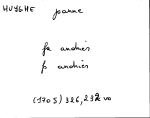 HUYGHE joanne
fa andries
p andries
(1705) 326, 232 vo